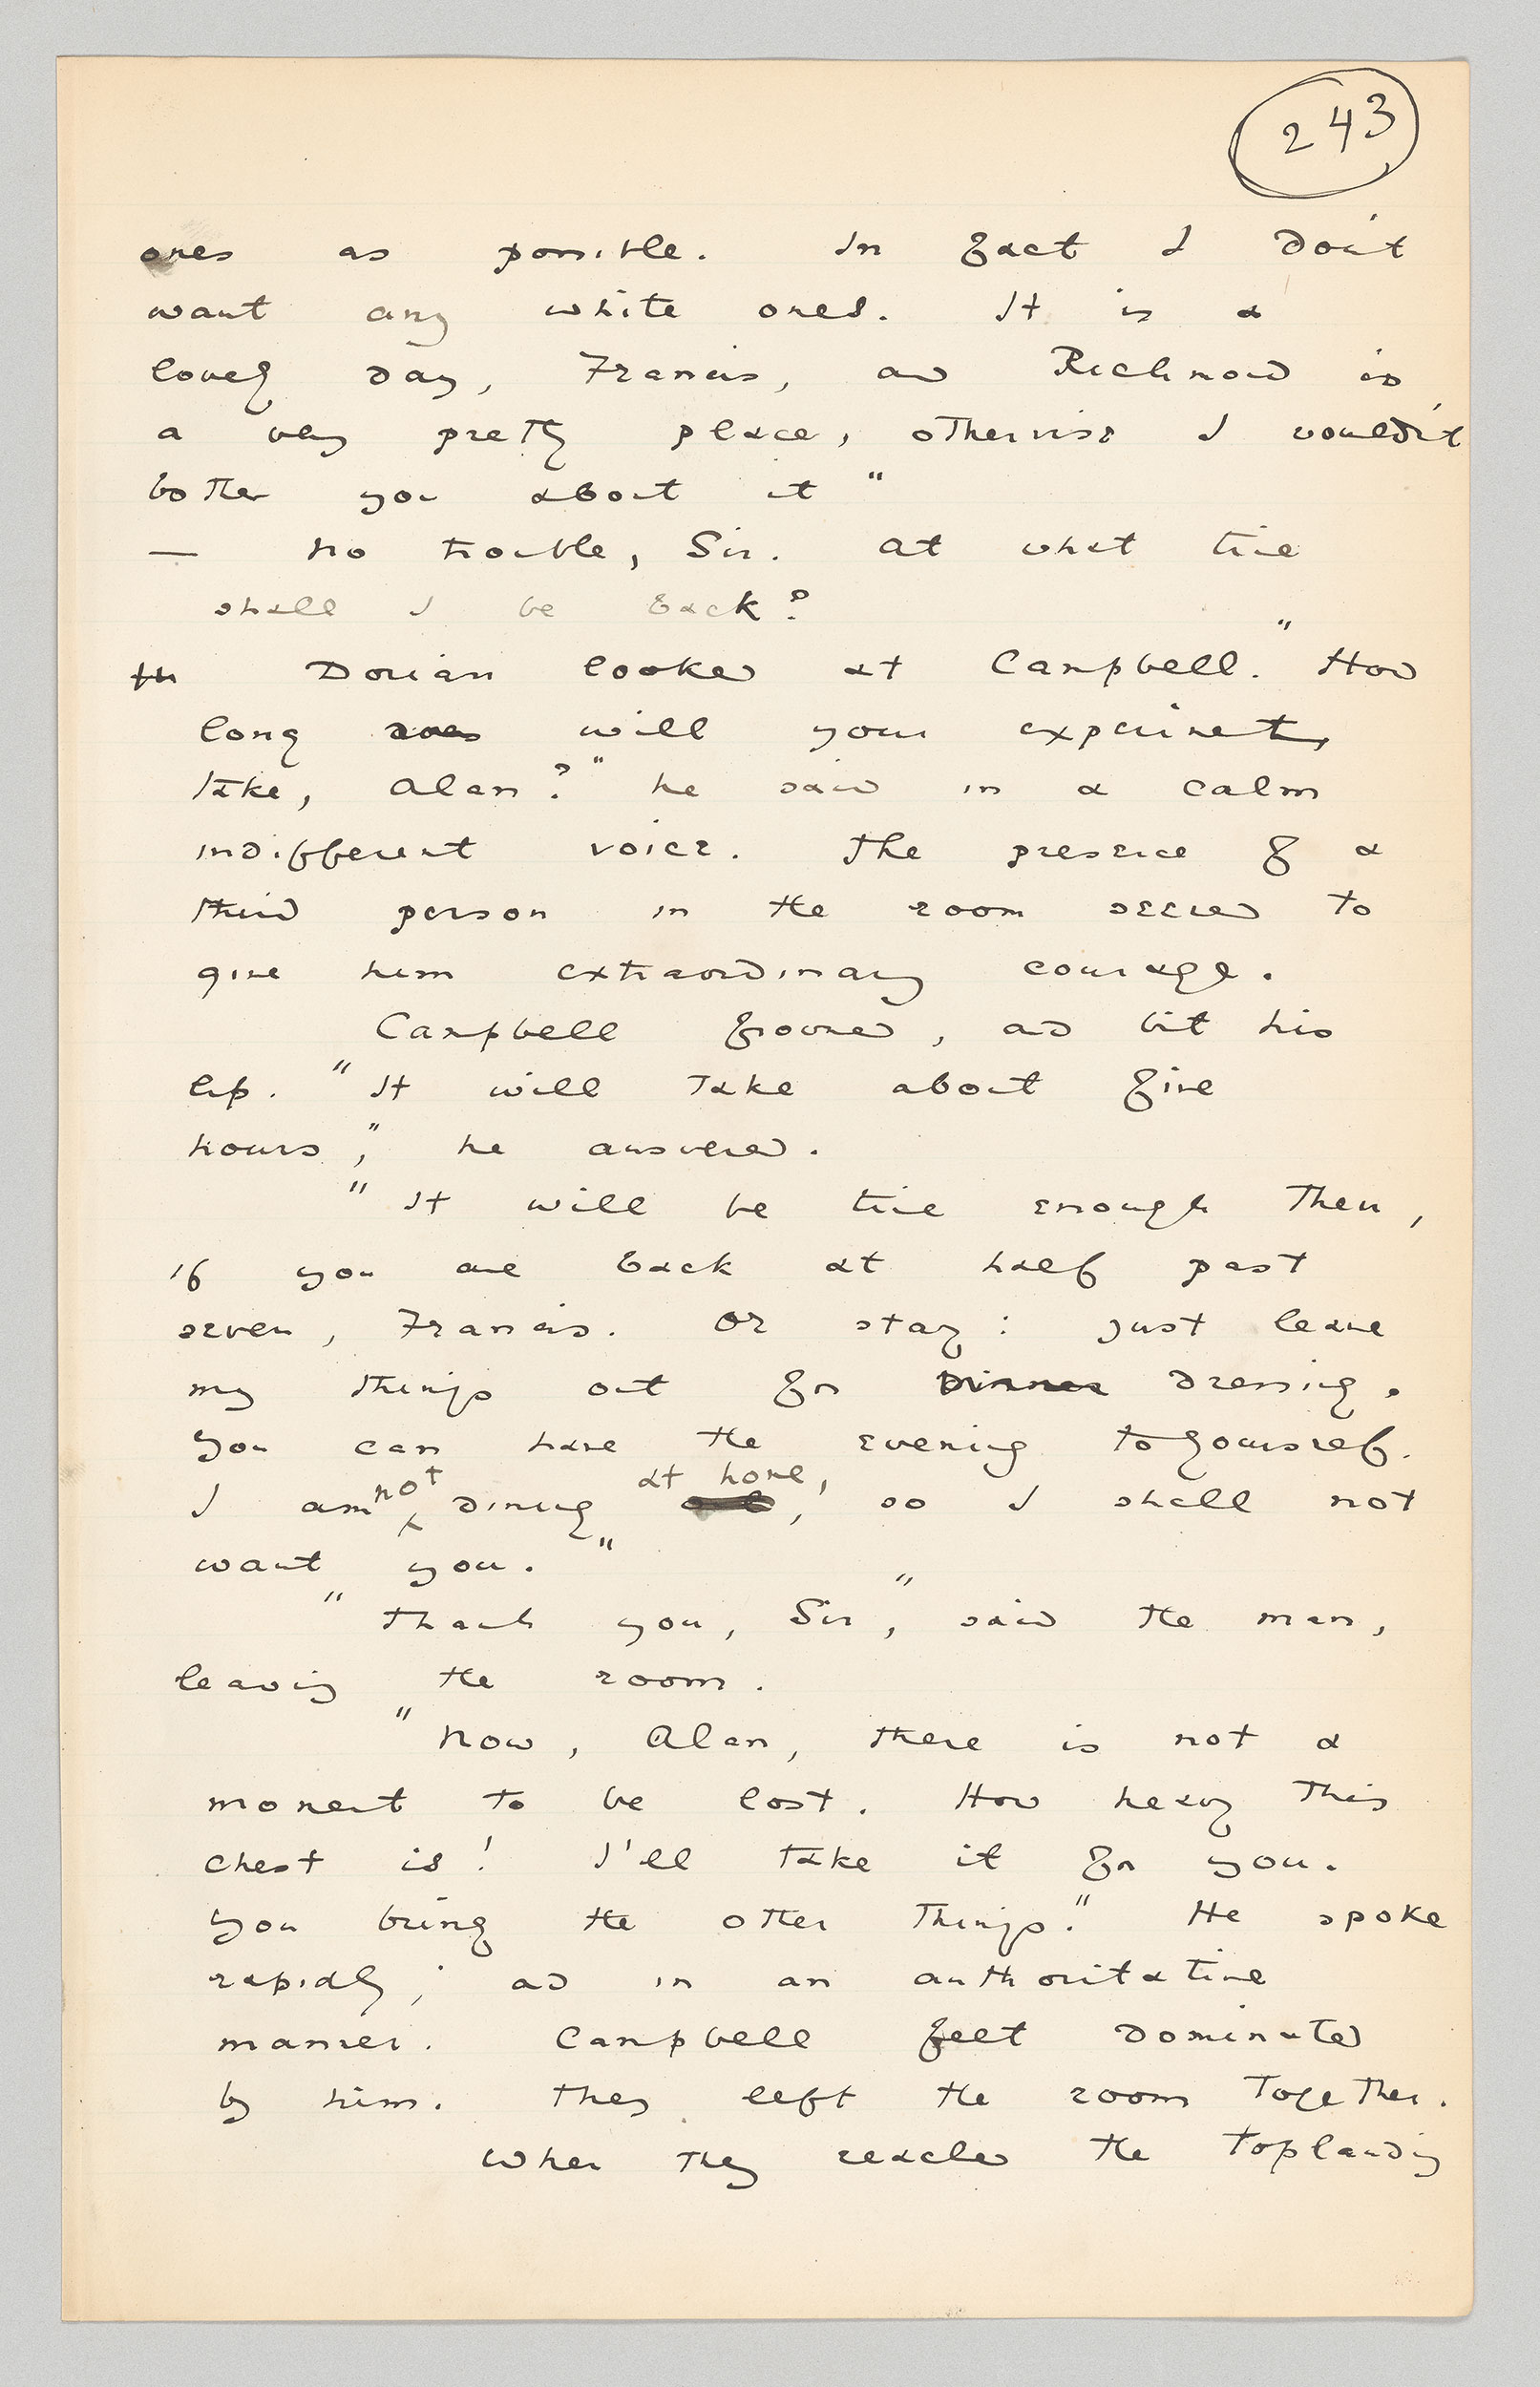 243
ones as possible. In fact I don't
want any white ones. It is a
lovely day, Francis, and Richmond is
a very pretty place, otherwise I wouldn't
bother you about it"
— No trouble, Sir. At what time
shall I be back?
Dorian looked at Campbell. "How
long does will your experiment,
take, Alan?" he said in a calm
indifferent voice. The presence of a
third person in the room seemed to
give him extraordinary courage.
Campbell frowned, and bit his
lip. "It will take about five
hours," he answered.
"It will be time enough then,
if you are back at half past
seven, Francis. Or stay: just leave
my things out for Dinner Dressing.
You can have the evening to yourself.
I am not dining at home, so I shall not
want you."
"Thank you, Sir," said the man,
leaving the room.
"Now, Alan, there is not a
moment to be lost. How heavy this
chest is! I'll take it for you.
You bring the other things." He spoke
rapidly, and in an authoritative
manner. Campbell felt dominated
by him. They left the room together.
When they reached the top landing